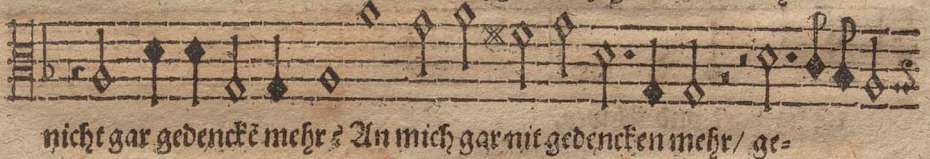 nicht gar gedenckẽ mehr? An mich gar nit gedencken mehr/ ge=